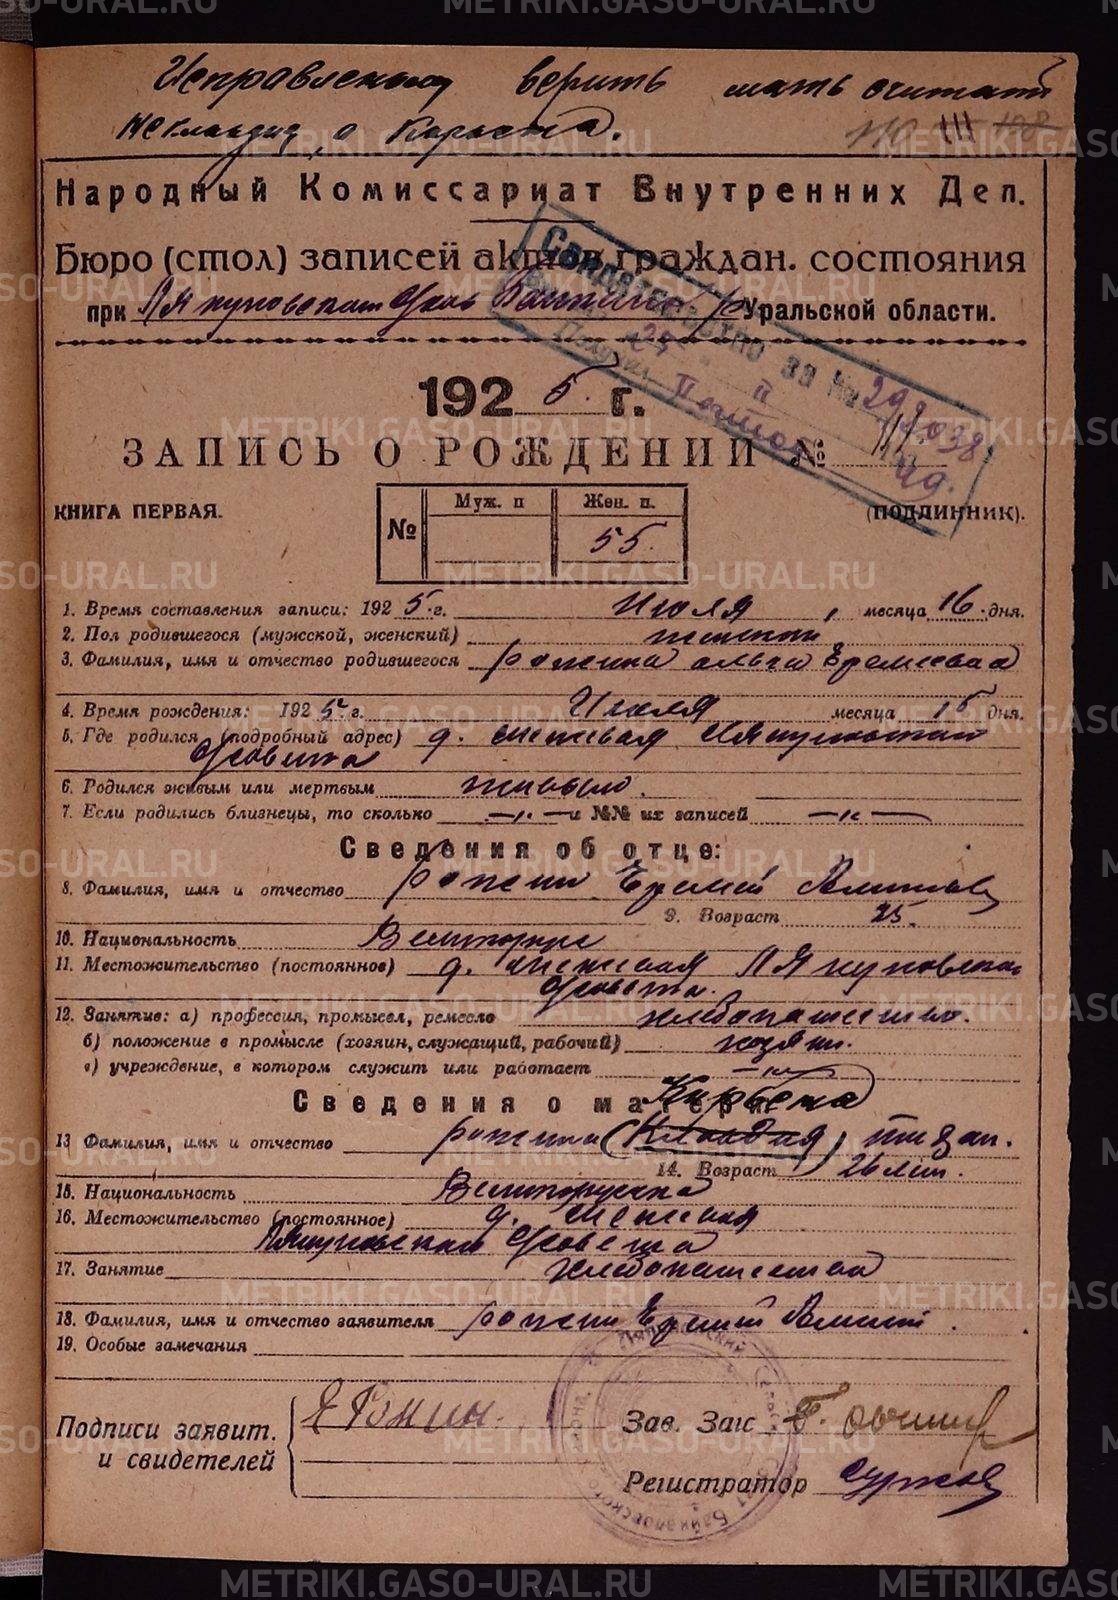 Исправленому верить мать считать
не Клавдия, а
110 111 108
Народный Комиссариат Внутренних Дел.
Бюро (стол) записей актов граждан. состояния
при Ляпуновском Уральской области.
Свидетельство за №
299038
25
Почтой
1925 г.
ЗАПИСЬ О РОЖДЕНИИ № 111.
КНИГА ПЕРВАЯ.
(ПОДЛИННИК).
№ Муж. п Жен. п.
55.
1. Время составления записи: 1925 г. Июля месяца 16 дня.
2. Пол родившегося (мужской, женский) женский
3. Фамилия, имя и отчество родившегося Ромина Еремеевна
4. Время рождения: 1925 г. Июля месяца 15 дня.
5. Где родился (подробный адрес) д. Межевая Ляпуновский
с/совета
6. Родился живым или мертвым живым.
7. Если родились близнецы, то сколько —"— и №№ их записей —"—
Сведения об отце:
8. Фамилия, имя и отчество Ромин Еремей
9. Возраст 25.
10. Национальность Великорус
11. Местожительство (постоянное) д. Межевая Ляпуновского
с/совета.
12. Занятие: а) профессия, промысел, ремесло хлебопашество.
б) положение в промысле (хозяин, служащий, рабочий) хозяин.
в) учреждение, в котором служит или работает —"—
Сведения о матери
13 Фамилия, имя и отчество Ромина (Клавдия)
14. Возраст 26 лет.
15. Национальность Великорусска
16. Местожительство (постоянное) д. Межевая
Ляпуновский с/совета
17. Занятие хлебопашества
18. Фамилия, имя и отчество заявителя Ромин Еремей
19. Особые замечания
Подписи заявит.
и свидетелей
Я Ромин.
Зав. Загс
Регистратор
METRIKI.GASO-URAL.RU